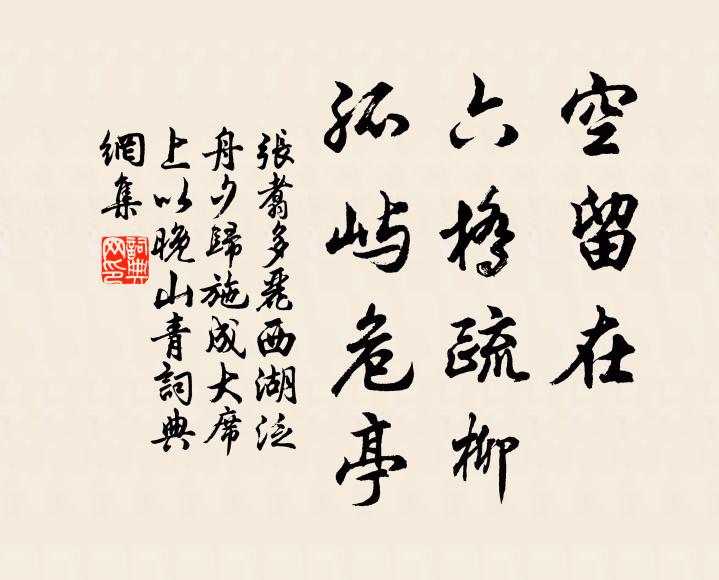 空留在
六橋疏柳
孤屿危亭
張翥多麗西湖泛
舟夕歸施成大席
上以晚山青詞典
網集
詞典网印